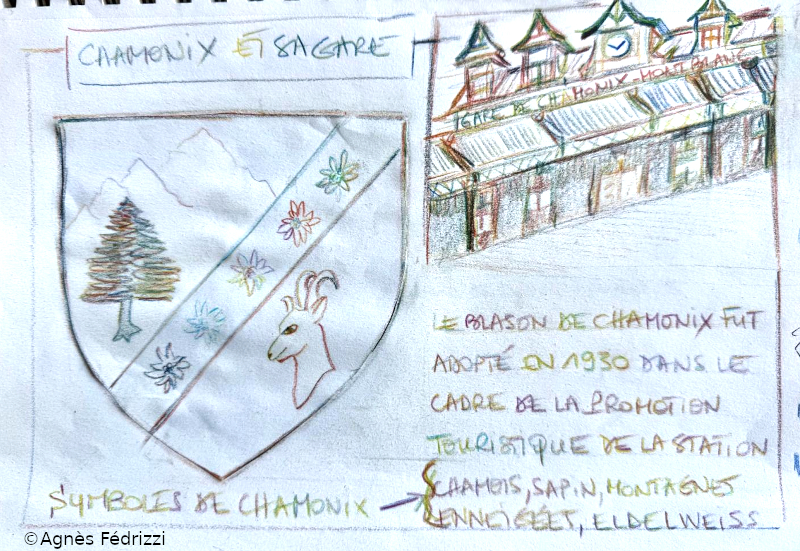 CHAMONIX ET SA GARE
GARE DE CHAMONIX-MONT-BLANC
LE BLASON DE CHAMONIX FUT
ADOPTÉ EN 1930 DANS LE
CADRE DE LA PROMOTION
TOURISTIQUE DE LA STATION
SYMBOLES DE CHAMONIX →
CHAMOIS, SAPIN, MONTAGNES
ENNEIGÉES, ELDELWEISS
©Agnès Fédrizzi